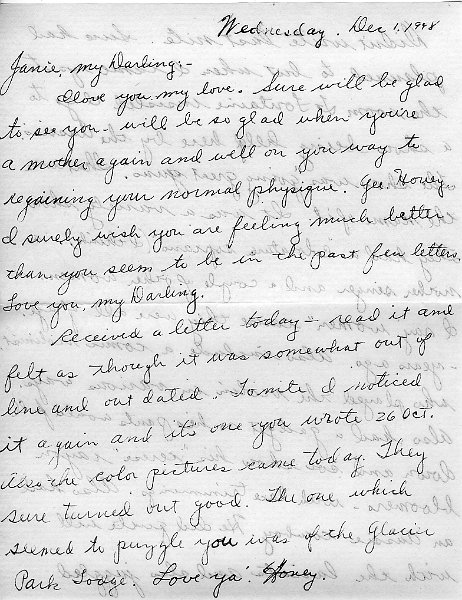 Wednesday. Dec 1, 1948
Janie, my Darling:-
I love you, my love. Sure will be glad
to see you - will be so glad when you're
a mother again and well on you way to
regaining your normal physique. Gee. Honey
I surely wish you are feeling much better
than you seem to be in the past few letters.
Love you, my Darling.
Received a letter today - read it and
felt as though it was somewhat out of
line and out dated. Tonite I noticed
it again and its one you wrote 26 Oct.
Also the color pictures came today. They
sure turned out good. The one which
seemed to puzzle you was of the Glacier
Park Lodge. Love ya! Honey.